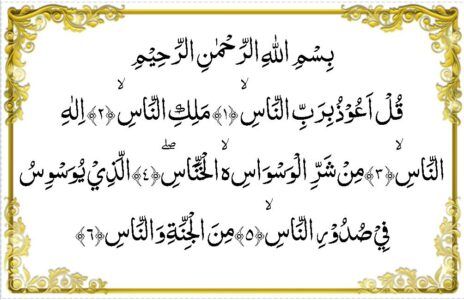 بِسْمِ اللهِ الرَّحْمٰنِ الرَّحِيْمِ
قُلْ اَعُوْذُ بِرَبِّ النَّاسِ ۙ﴿۱﴾ مَلِكِ النَّاسِ ۙ﴿۲﴾ اِلٰهِ
النَّاسِ ۙ﴿۳﴾ مِنْ شَرِّ الْوَسْوَاسِ ۙ۬ الْخَنَّاسِ ۪ۙ﴿۴﴾ الَّذِيْ يُوَسْوِسُ
فِيْ صُدُوْرِ النَّاسِ ۙ﴿۵﴾ مِنَ الْجِنَّةِ وَ النَّاسِ﴿۶﴾